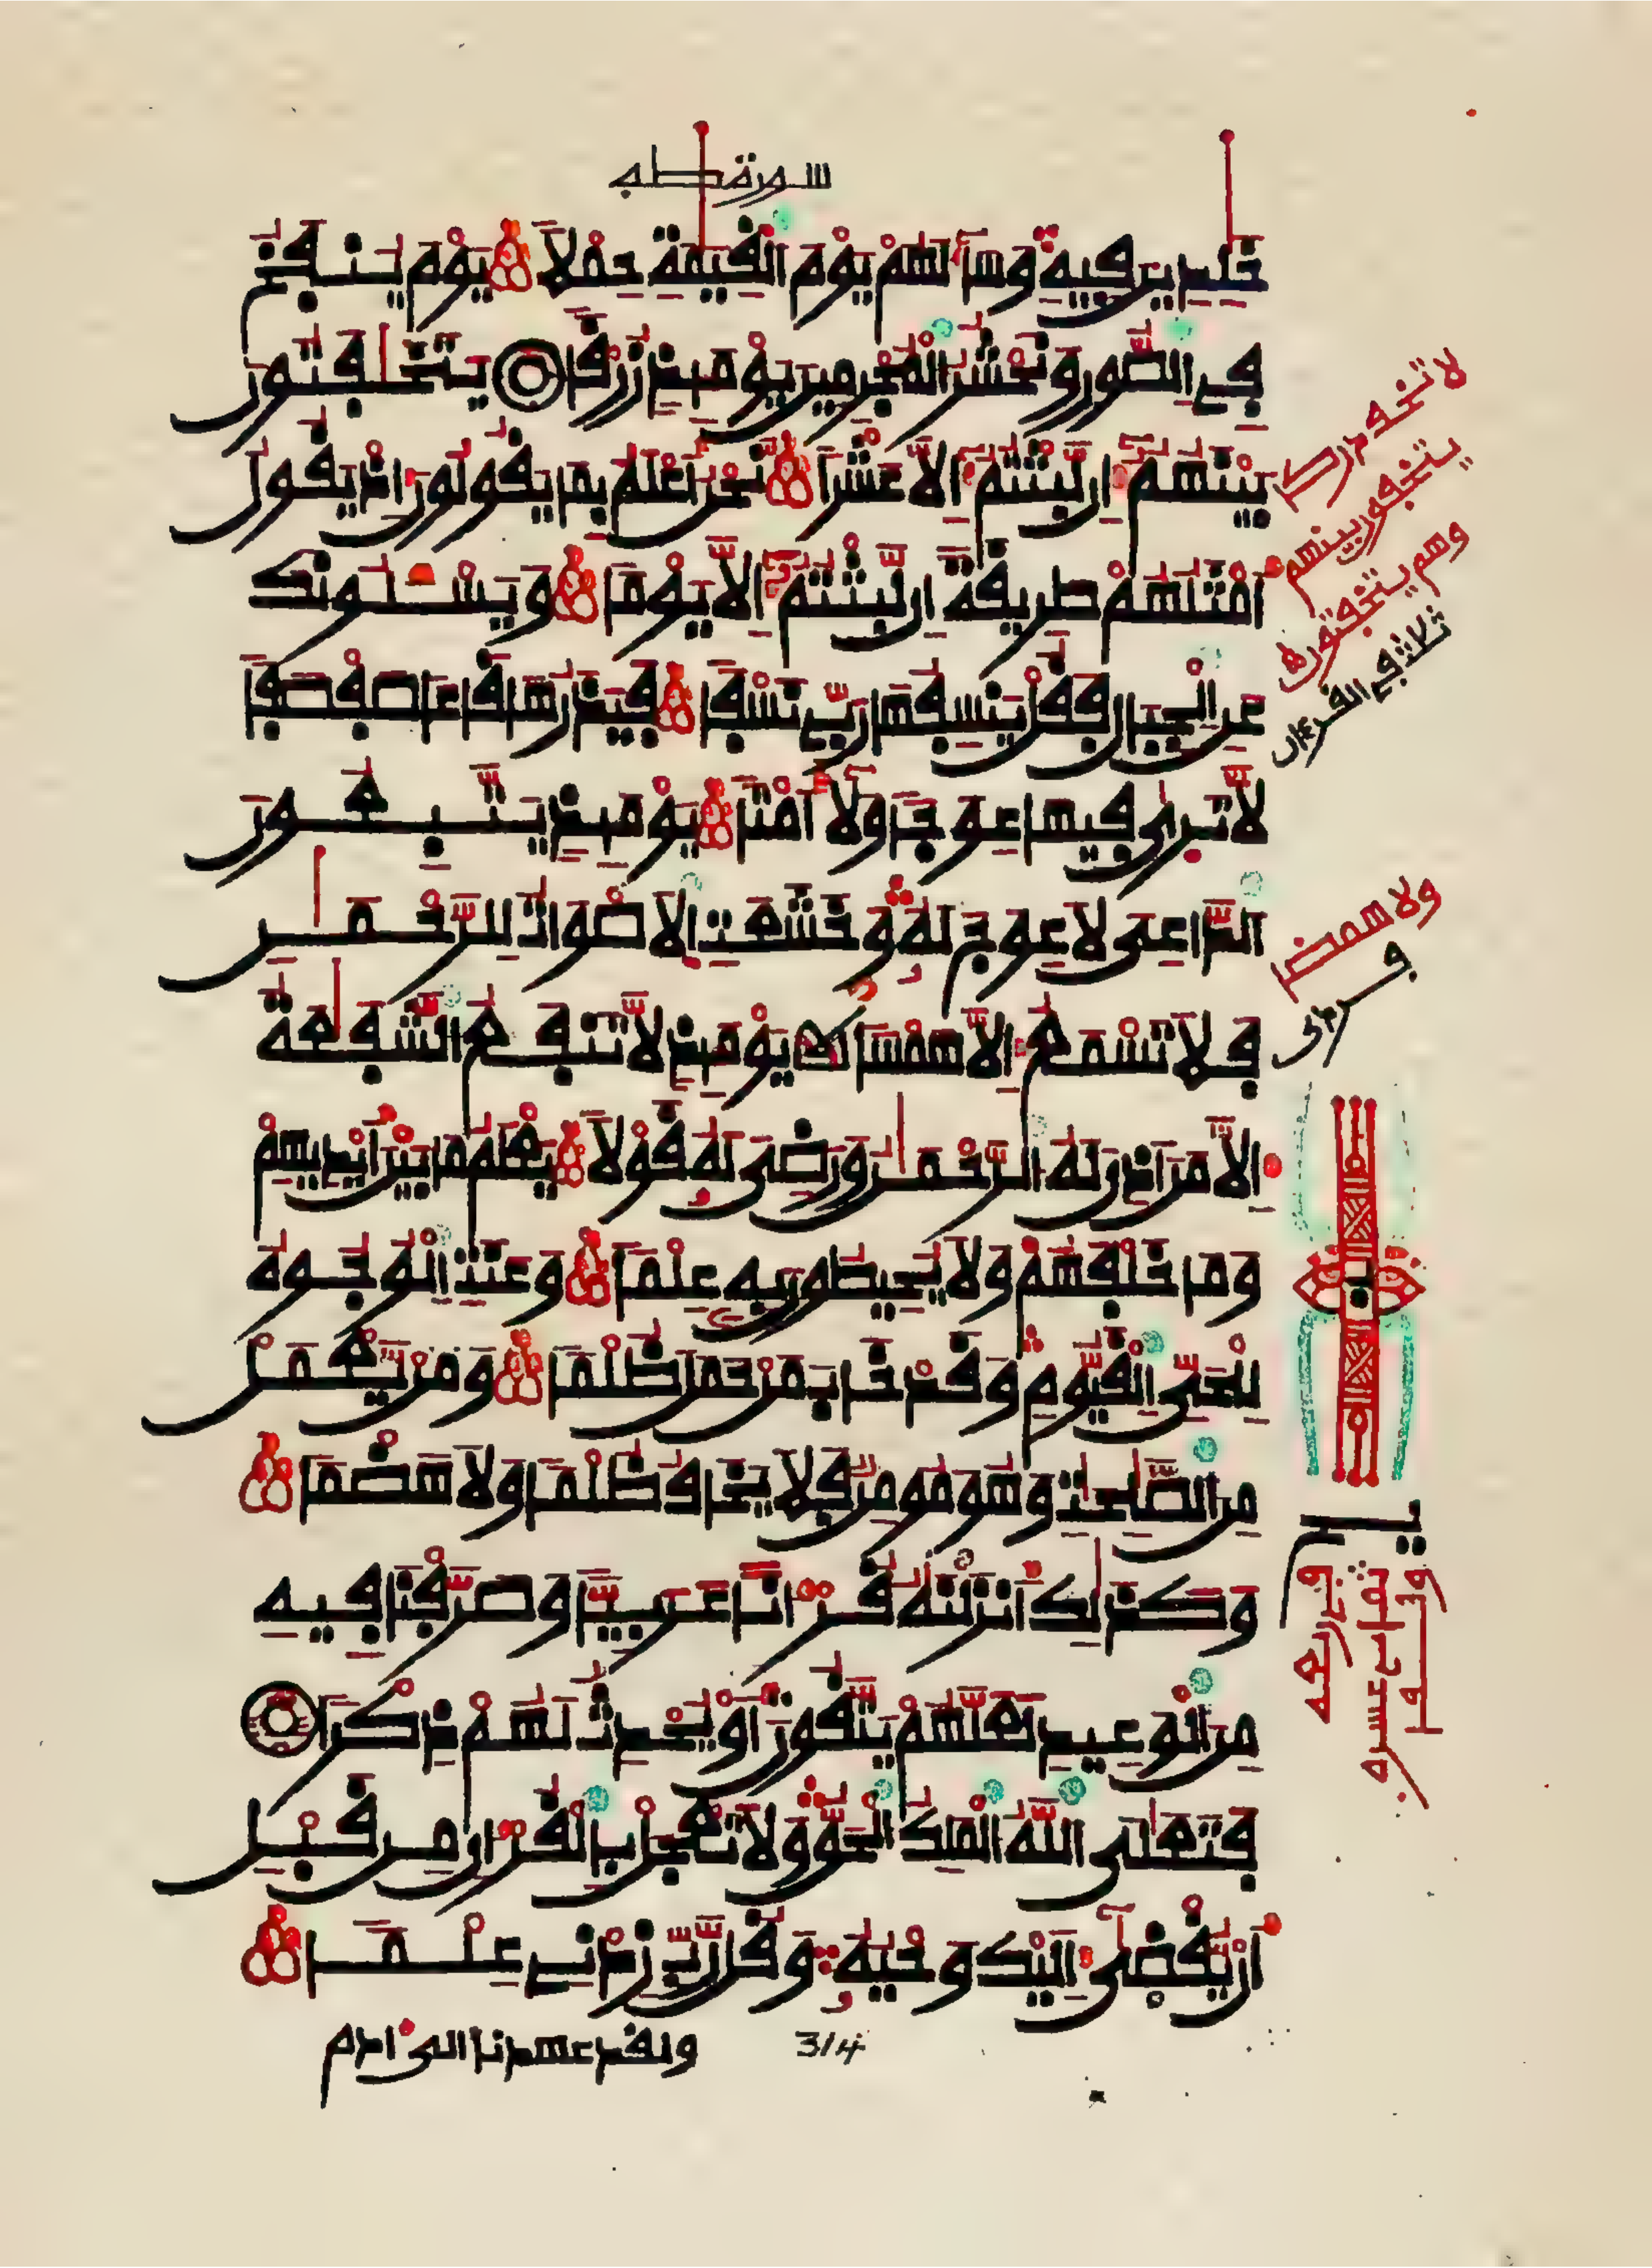 سورة طه
خَٰلِدِينَ فِيهِ وَسَآءَ لَهُمْ يَوْمَ اَ۬لْقِيَٰمَةِ حِمْلاٗ يَوْمَ يُنفَخُ
فِے اِ۬لصُّورِ وَنَحْشُرُ اُ۬لْمُجْرِمِينَ يَوْمَئِذٖ زُرْقاٗ يَتَخَٰفَتُونَ
بَيْنَهُمُۥٓ إِن لَّبِثْتُمُۥٓ إِلَّا عَشْراٗ نَّحْنُ أَعْلَمُ بِمَا يَقُولُونَ إِذْ يَقُولُ
أَمْثَلُهُمْ طَرِيقَةً اِن لَّبِثْتُمُۥٓ إِلَّا يَوْماٗ وَيَسْـَٔلُونَكَ
عَنِ اِ۬لْجِبَالِ فَقُلْ يَنسِفُهَا رَبِّے نَسْفاٗ فَيَذَرُهَا قَاعاٗ صَفْصَفاٗ
لَّا تَر۪ىٰ فِيهَا عِوَجاٗ وَلَآ أَمْتاٗ يَوْمَئِذٖ يَتَّبِعُونَ
اَ۬لدَّاعِىَ لَا عِوَجَ لَهُۥ وَخَشَعَتِ اِ۬لَاصْوَاتُ لِلرَّحْمَٰنِ
فَلَا تَسْمَعُ إِلَّا هَمْساٗ يَوْمَئِذٖ لَّا تَنفَعُ اُ۬لشَّفَٰعَةُ
إِلَّا مَنَ اَذِنَ لَهُ اُ۬لرَّحْمَٰنُ وَرَضِىَ لَهُۥ قَوْلاٗ يَعْلَمُ مَا بَيْنَ أَيْدِيهِمْ
وَمَا خَلْفَهُمْ وَلَا يُحِيطُونَ بِهِۦ عِلْماٗ وَعَنَتِ اِ۬لْوُجُوهُ
لِلْحَىِّ اِ۬لْقَيُّومِ وَقَدْ خَابَ مَنْ حَمَلَ ظُلْماٗ وَمَنْ يَّعْمَلْ
مِنَ اَ۬لصَّٰلِحَٰتِ وَهُوَ مُومِنٞ فَلَا يَخَافُ ظُلْماٗ وَلَا هَضْماٗ
وَكَذَٰلِكَ أَنزَلْنَٰهُ قُرْءَاناً عَرَبِيّاٗ وَصَرَّفْنَا فِيهِ
مِنَ اَ۬لْوَعِيدِ لَعَلَّهُمْ يَتَّقُونَ أَوْ يُحْدِثُ لَهُمْ ذِكْراٗ
فَتَعَٰلَى اَ۬للَّهُ اُ۬لْمَلِكُ اُ۬لْحَقُّ وَلَا تَعْجَلْ بِالْقُرْءَانِ مِن قَبْلِ
أَنْ يُّقْضَىٰٓ إِلَيْكَ وَحْيُهُۥ وَقُل رَّبِّ زِدْنِے عِلْماٗ
ولقد عهدنا إلى ءادم
314
لا تخف درك
يتخفون بينهم
وهم يتخفتون
ثلاث في القرءان
ولا همض